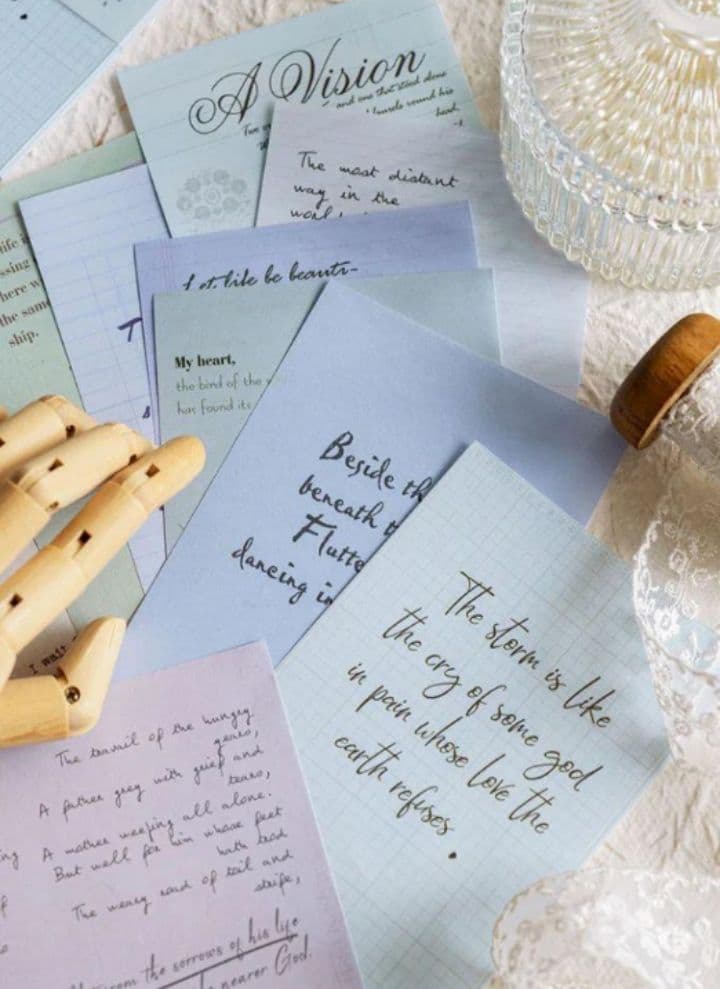 A Vision
and one that stood alone
laurels round his
head.
The most distant
way in the
Let life be beauti-
life
here
the same
ship.
My heart,
the bird of the
has found its
Beside
beneath
dancing in
The storm is like
the cry of some god
in pain whose love the
earth refuses.
I wait
The travail of the hungry
years,
A father grey with grief and
tears,
A mother weeping all alone.
But well for him whose feet
hath trod
The weary road of toil and
strife,
from the sorrows of his life
nearer God.